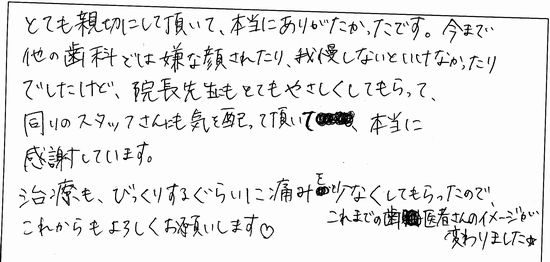 とても親切にして頂いて、本当にありがたかったです。今まで
他の歯科では嫌な顔されたり、我慢しないといけなかったり
でしたけど、院長先生もとてもやさしくしてもらって、
回りのスタッフさんにも気を配って頂いて 本当に
感謝しています。
治療も、びっくりするぐらいに痛みを少なくしてもらったので、
これからもよろしくお願いします♡
これまでの歯医者さんのイメージが
変わりました☆